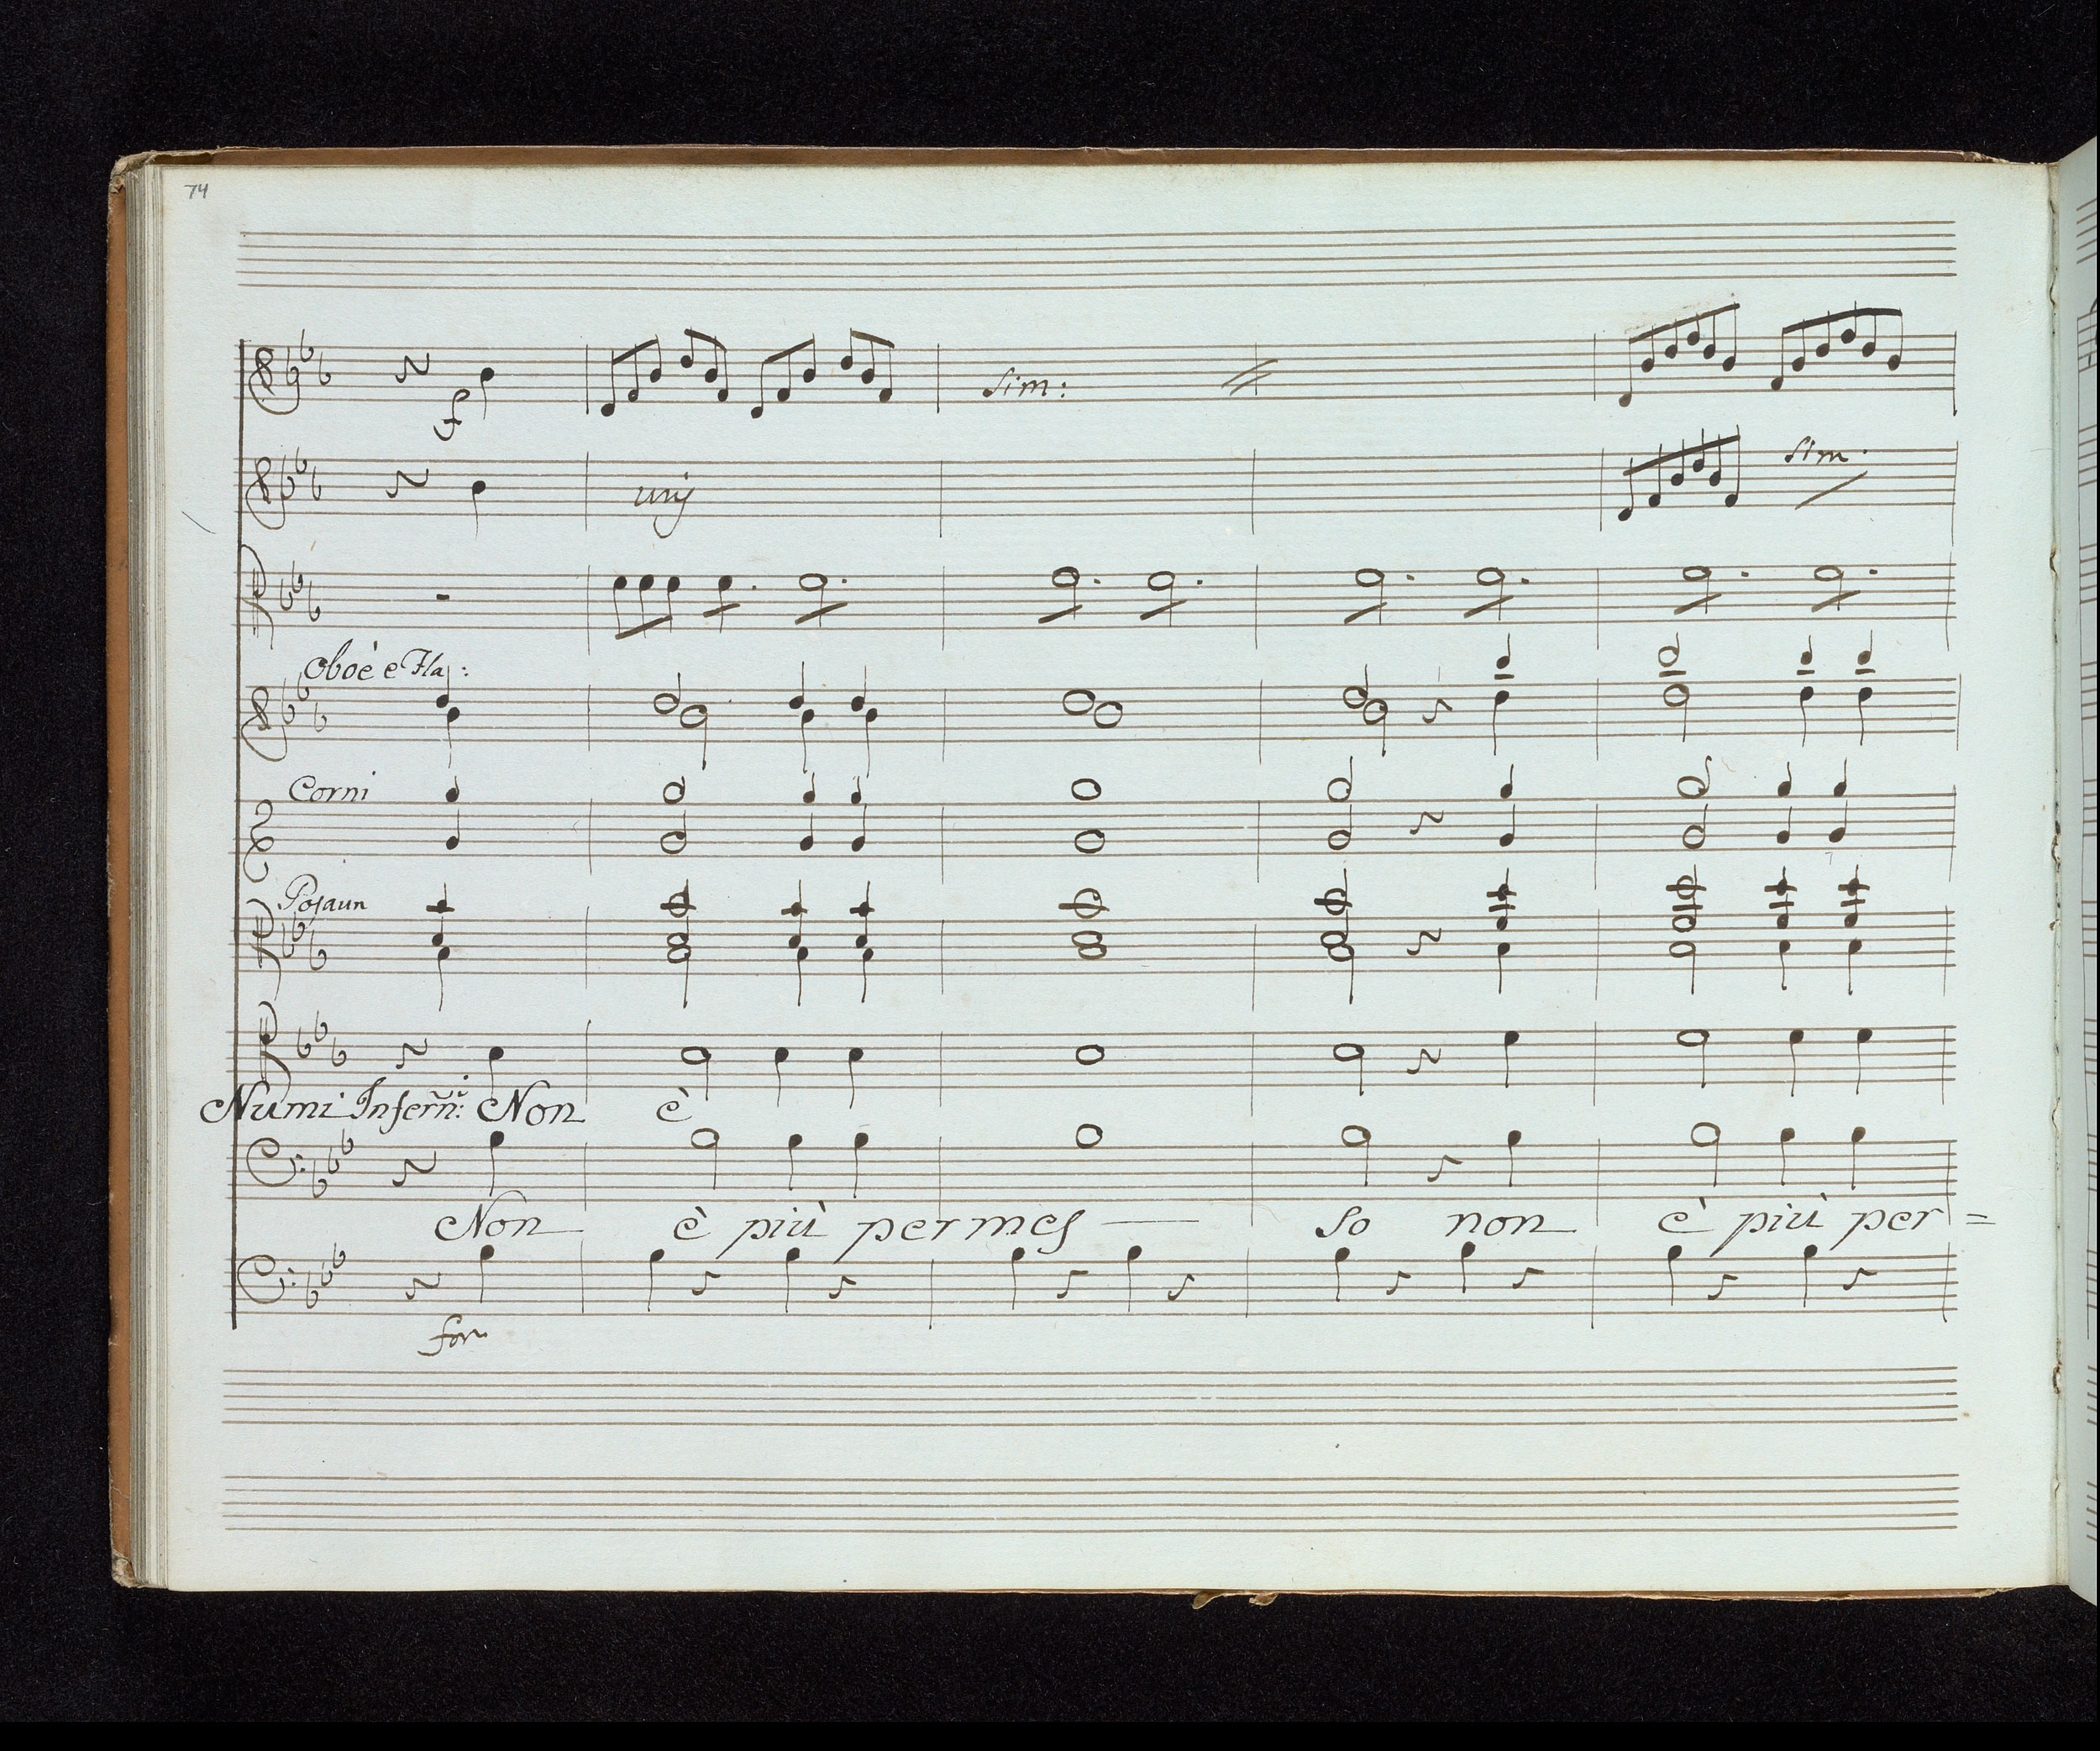 74
f
sim:
unj
sim.
Oboè e Fla:
Corni
Posaun
Numi Infern: Non è
Non è più permes — so non è più per =
for